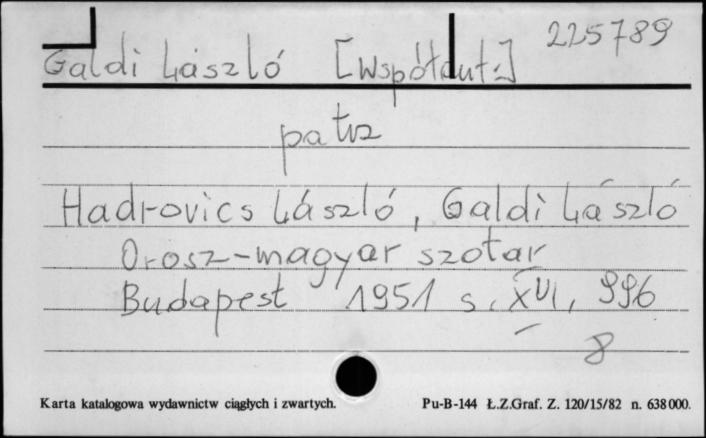 225789
Galdi László [Współaut.]
patrz
Hadrovics László, Galdi László
Orosz-magyar szotar
Budapest 1951 s. XVI, 996
8
Karta katalogowa wydawnictw ciągłych i zwartych. Pu-B-144 Ł.Z.Graf. Z. 120/15/82 n. 638000.